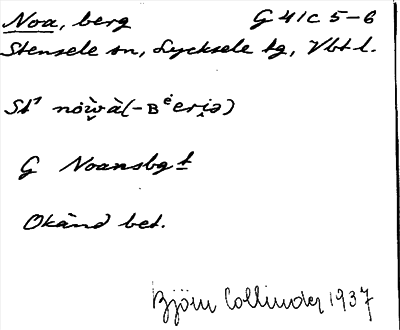 Noa, berg G 41C 5-6
Stensele sn, Lycksele tg, Vbtl.
G Noansbgt
Okänd bet.
Björn Collinder 1937